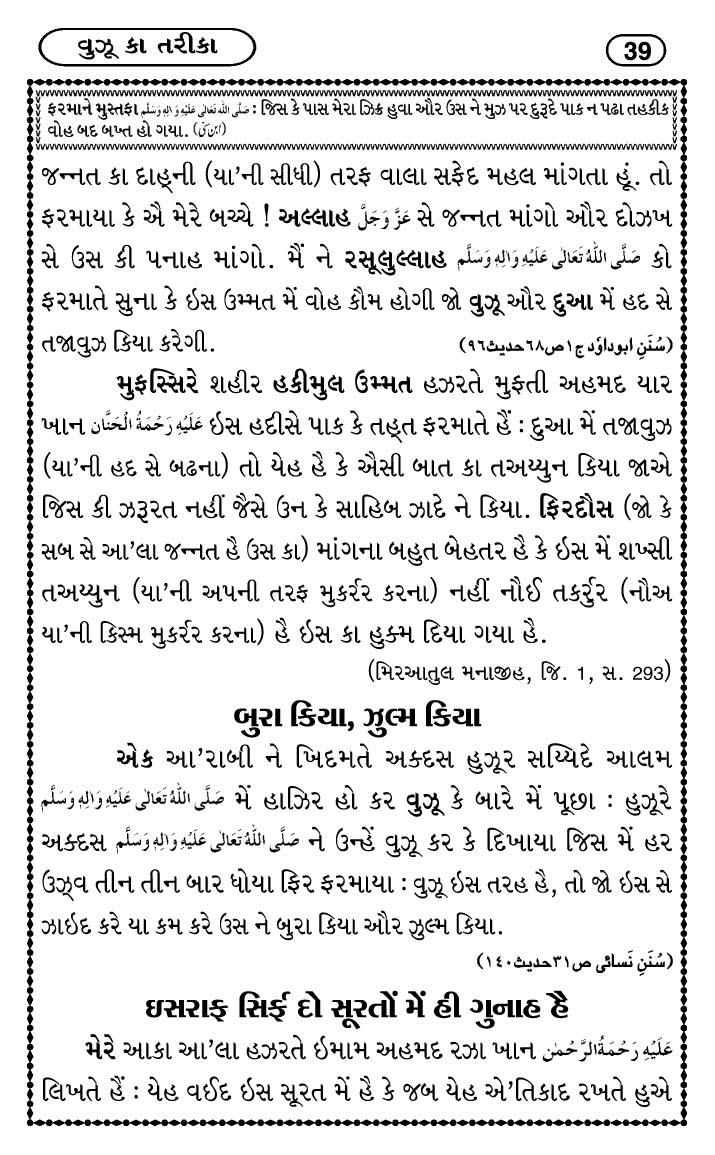 વુઝૂ કા તરીકા
39
ફરમાને મુસ્તફા صَلَّى اللهُ تَعَالٰى عَلَيْهِ وَاٰلِهٖ وَسَلَّم : જિસ કે પાસ મેરા ઝિક્ર હુવા ઔર ઉસ ને મુઝ પર દુરૂદે પાક ન પઢા તહકીક
વોહ બદ બખ્ત હો ગયા. (ابن سنی)
જન્નત કા દાહની (યા'ની સીધી) તરફ વાલા સફેદ મહલ માંગતા હૂં. તો
ફરમાયા કે ઐ મેરે બચ્ચે ! અલ્લાહ عَزَّ وَجَلَّ સે જન્નત માંગો ઔર દોઝખ
સે ઉસ કી પનાહ માંગો. મૈં ને રસૂલુલ્લાહ صَلَّى اللهُ تَعَالٰى عَلَيْهِ وَاٰلِهٖ وَسَلَّم કો
ફરમાતે સુના કે ઇસ ઉમ્મત મેં વોહ કૌમ હોગી જો વુઝૂ ઔર દુઆ મેં હદ સે
તજાવુઝ કિયા કરેગી. (سُنَنِ ابوداوٗد ج۱ص۶۸حدیث۹۶)
મુફસ્સિરે શહીર હકીમુલ ઉમ્મત હઝરતે મુફ્તી અહમદ યાર
ખાન عَلَيْهِ رَحْمَةُ الْحَنَّان ઇસ હદીસે પાક કે તહ્ત ફરમાતે હૈં : દુઆ મેં તજાવુઝ
(યા'ની હદ સે બઢના) તો યેહ હૈ કે ઐસી બાત કા તઅય્યુન કિયા જાએ
જિસ કી ઝરૂરત નહીં જૈસે ઉન કે સાહિબ ઝાદે ને કિયા. ફિરદૌસ (જો કે
સબ સે આ'લા જન્નત હૈ ઉસ કા) માંગના બહુત બેહતર હૈ કે ઇસ મેં શખ્સી
તઅય્યુન (યા'ની અપની તરફ મુકર્રર કરના) નહીં નૌઈ તકર્રુર (નૌઅ
યા'ની કિસ્મ મુકર્રર કરના) હૈ ઇસ કા હુક્મ દિયા ગયા હૈ.
(મિરઆતુલ મનાજીહ, જિ. 1, સ. 293)
બુરા કિયા, ઝુલ્મ કિયા
એક આ'રાબી ને ખિદમતે અક્દસ હુઝૂર સય્યિદે આલમ
صَلَّى اللهُ تَعَالٰى عَلَيْهِ وَاٰلِهٖ وَسَلَّم મેં હાઝિર હો કર વુઝૂ કે બારે મેં પૂછા : હુઝૂરે
અક્દસ صَلَّى اللهُ تَعَالٰى عَلَيْهِ وَاٰلِهٖ وَسَلَّم ને ઉન્હેં વુઝૂ કર કે દિખાયા જિસ મેં હર
ઉઝ્વ તીન તીન બાર ધોયા ફિર ફરમાયા : વુઝૂ ઇસ તરહ હૈ, તો જો ઇસ સે
ઝાઇદ કરે યા કમ કરે ઉસ ને બુરા કિયા ઔર ઝુલ્મ કિયા.
(سُنَنِ نَسائی ص۳۱حدیث۱۴۰)
ઇસરાફ સિર્ફ દો સૂરતોં મેં હી ગુનાહ હૈ
મેરે આકા આ'લા હઝરતે ઇમામ અહમદ રઝા ખાન عَلَيْهِ رَحْمَةُ الرَّحْمٰن
લિખતે હૈં : યેહ વઈદ ઇસ સૂરત મેં હૈ કે જબ યેહ એ'તિકાદ રખતે હુએ